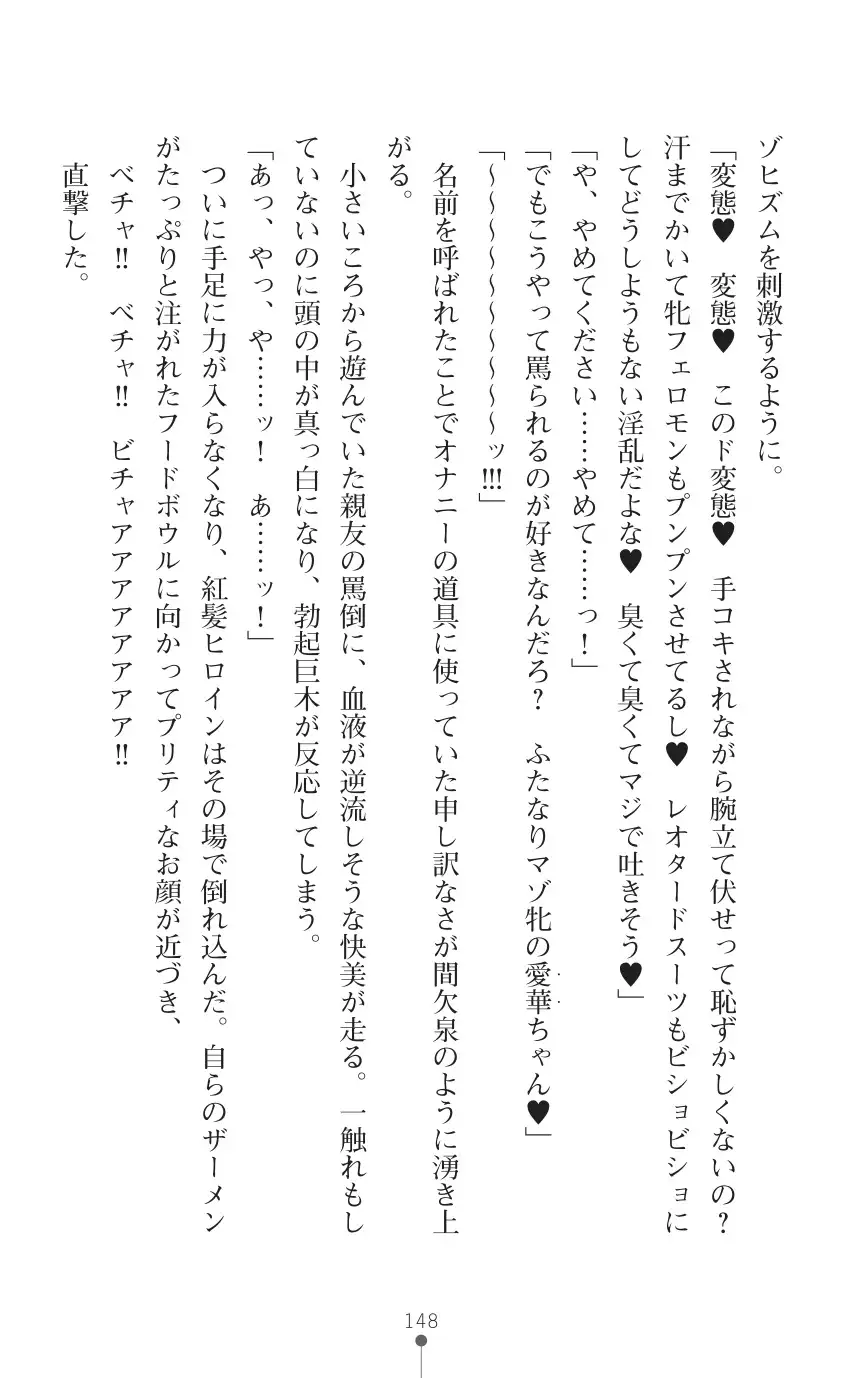 ゾヒズムを刺激するように。
「変態♥　変態♥　このド変態♥　手コキされながら腕立て伏せって恥ずかしくないの？
汗までかいて牝フェロモンもプンプンさせてるし♥　レオタードスーツもビショビショに
してどうしようもない淫乱だよな♥　臭くて臭くてマジで吐きそう♥」
「や、やめてください……やめて……っ！」
「でもこうやって罵られるのが好きなんだろ？　ふたなりマゾ牝の愛華ちゃん♥」
「～～～～～～～～～ッ!!!」
　名前を呼ばれたことでオナニーの道具に使っていた申し訳なさが間欠泉のように湧き上
がる。
　小さいころから遊んでいた親友の罵倒に、血液が逆流しそうな快美が走る。一触れもし
ていないのに頭の中が真っ白になり、勃起巨木が反応してしまう。
「あっ、やっ、や……ッ！　あ……ッ！」
　ついに手足に力が入らなくなり、紅髪ヒロインはその場で倒れ込んだ。自らのザーメン
がたっぷりと注がれたフードボウルに向かってプリティなお顔が近づき、
　ベチャ!!　ベチャ!!　ビチャアアアアアアアア!!
　直撃した。
148